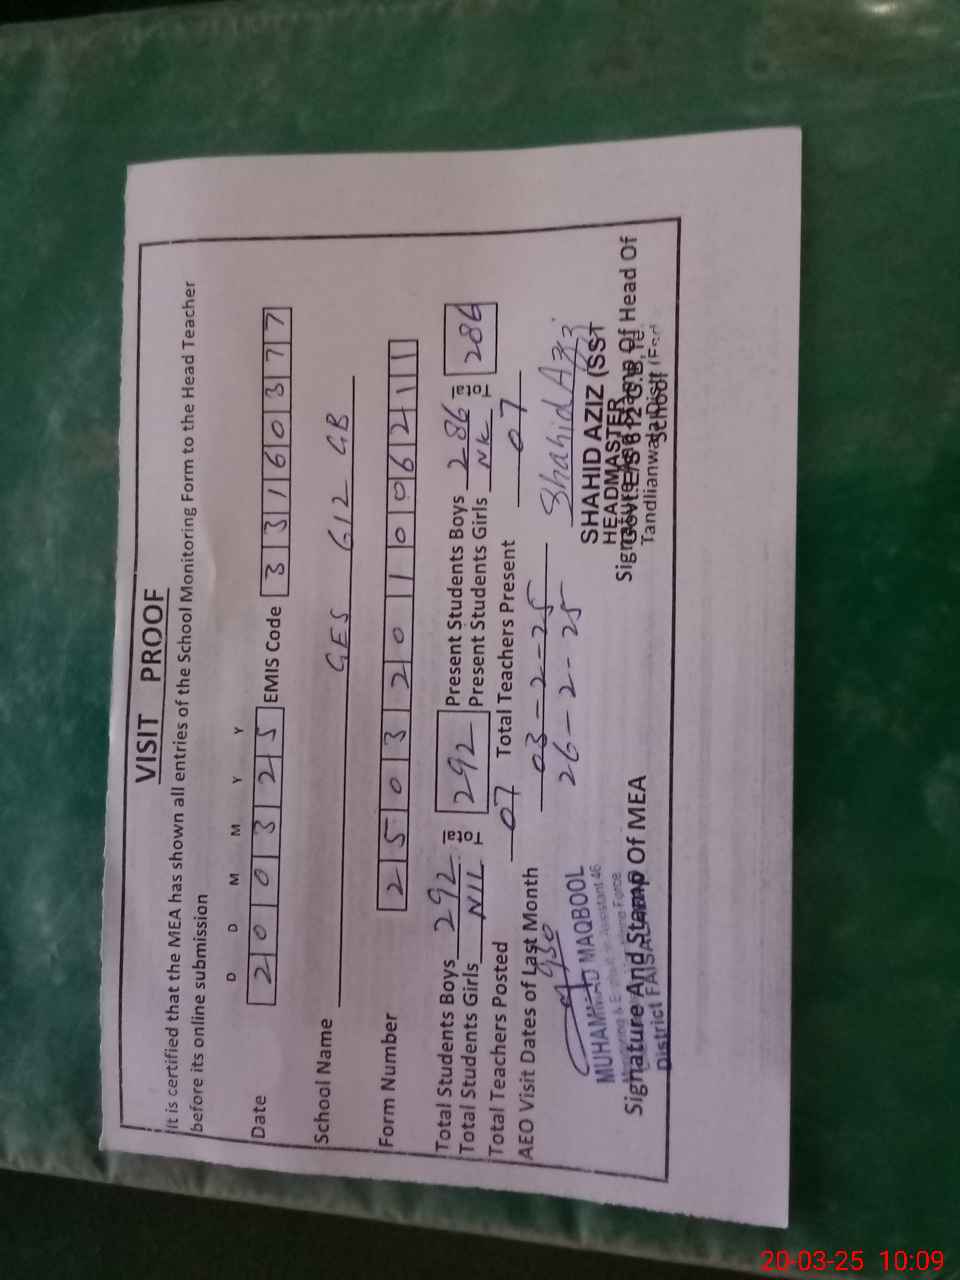 VISIT PROOF
It is certified that the MEA has shown all entries of the School Monitoring Form to the Head Teacher
before its online submission
D D M M Y Y
Date 200325 EMIS Code 33160377
School Name GES 612 GB
Form Number 2503201006211
Total Students Boys 292 Total 292 Present Students Boys 286 Total 286
Total Students Girls NIL Present Students Girls NIL
Total Teachers Posted 07 Total Teachers Present 07
AEO Visit Dates of Last Month 03-2-25
26-2-25
930
Shahid Aziz
MUHAMMAD MAQBOOL
Monitoring & Evaluation Assistant 46
SHAHID AZIZ (SST
HEADMASTER
Govt. E/S 612 G.B, Te
Tandlianwala Distt (Fsd
Signature And Stamp Of MEA
Signature And Stamp Of Head Of
School
District FAISALABAD
20-03-25 10:09